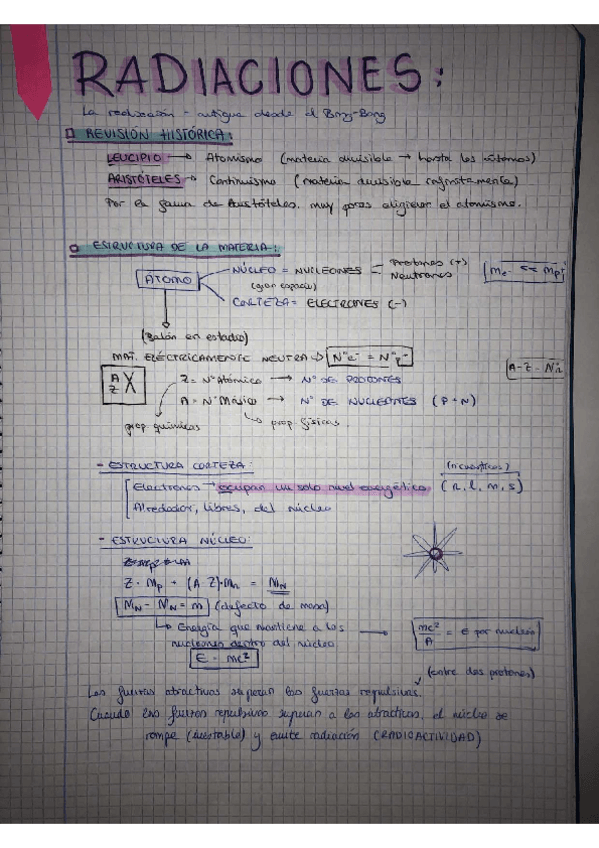 RADIACIONES:
La radiación - antigua desde el Bing-Bang
REVISIÓN HISTÓRICA:
LEUCIPIO → Atomismo (materia divisible → hasta los átomos)
ARISTÓTELES → Continuismo (materia divisible infinitamente)
Por la fama de Aristóteles, muy pocos eligieron el atomismo.
ESTRUCTURA DE LA MATERIA:
ÁTOMO
NÚCLEO = NUCLEONES - Protones (+)
Neutrones
(gran espacio)
me- << mp+
CORTEZA = ELECTRONES (-)
(Balón en estadio)
MAT. ELÉCTRICAMENTE NEUTRA → Nºe- = Nºp+
A Z X
Z = Nº Atómico → Nº DE PROTONES
A-Z = Nºn
A = Nº Másico → Nº DE NUCLEONES (P+N)
prop químicas
prop. físicas.
- ESTRUCTURA CORTEZA:
(n cuánticos)
Electrones → ocupan un solo nivel energético (n, l, m, s)
Alrededor, libres, del núcleo
- ESTRUCTURA NÚCLEO:
Z · Mp + (A-Z)·Mn = MN
MN - M'N = m (defecto de masa)
Energía que mantiene a los
nucleones dentro del núcleo
→ mc²/A = E por nucleón
E = mc²
(entre dos protones)
Las fuerzas atractivas superan las fuerzas repulsivas.
Cuando las fuerzas repulsivas superan a las atractivas, el núcleo se
rompe (inestable) y emite radiación (RADIOACTIVIDAD)